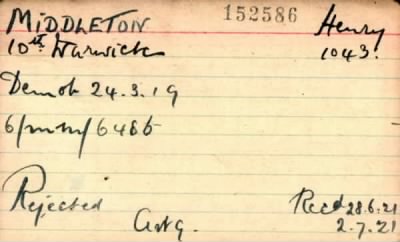 MIDDLETON 152586 Henry
10th Warwick 1043.
Demob 24.3.19
6/MM/6485
Rejected Recd 28.6.21
2.7.21